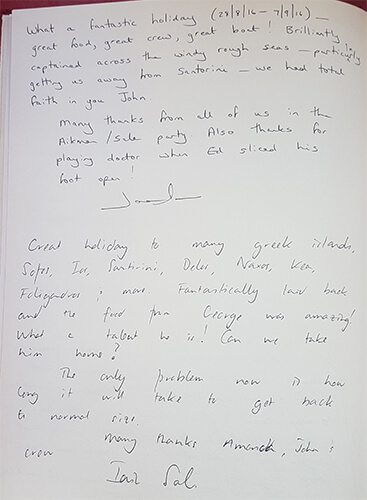 What a fantastic holiday (28/8/16 - 7/9/16) -
great food, great crew, great boat! Brilliantly
captained across the windy rough seas - particularly
getting us away from Santorini - we had total
faith in you John
Many thanks from all of us in the
Aikman/Sale party Also thanks for
playing doctor when Ed sliced his
foot open!
Great holiday to many greek islands,
Ios, Santirini, Delos, Naxos, Kea,
Folegandros & more. Fantastically laid back
and the food from George was amazing!
What a talent he is! Can we take
him home?
The only problem now is how
long it will take to get back
to normal size.
Many thanks Amanda, John &
crew
Iain